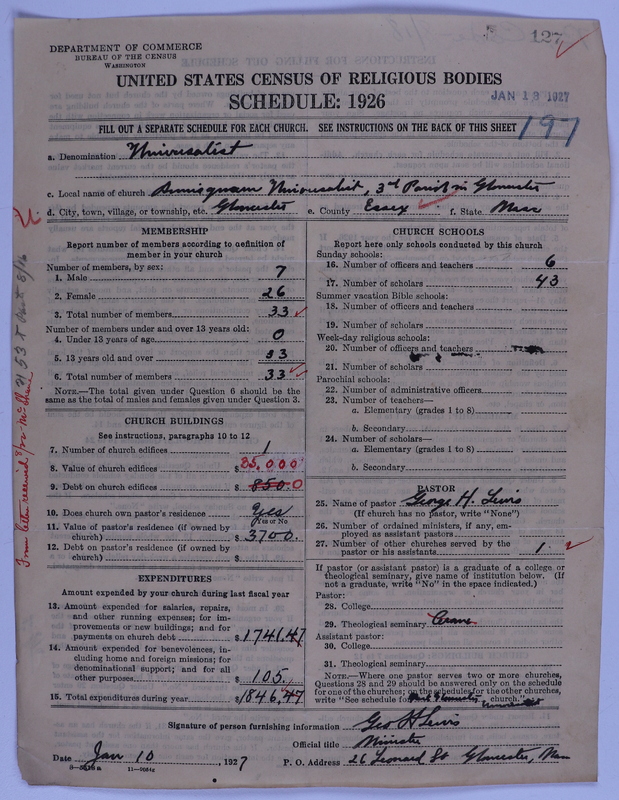 127
DEPARTMENT OF COMMERCE
BUREAU OF THE CENSUS
WASHINGTON
UNITED STATES CENSUS OF RELIGIOUS BODIES
SCHEDULE: 1926
JAN 13 1927
FILL OUT A SEPARATE SCHEDULE FOR EACH CHURCH. SEE INSTRUCTIONS ON THE BACK OF THIS SHEET
197
a. Denomination Universalist
c. Local name of church Annisquam Universalist, 3rd Parish in Gloucester
d. City, town, village, or township, etc. Gloucester e. County Essex f. State Mass
MEMBERSHIP
Report number of members according to definition of
member in your church
Number of members, by sex:
1. Male 7
2. Female 26
3. Total number of members 33
Number of members under and over 13 years old:
4. Under 13 years of age 0
5. 13 years old and over 33
6. Total number of members 33
NOTE.—The total given under Question 6 should be
same as the total of males and females given under Question 3.
CHURCH BUILDINGS
See instructions, paragraphs 10 to 12
7. Number of church edifices 1
8. Value of church edifices $35,000
9. Debt on church edifices $850.0
10. Does church own pastor's residence Yes
Yes or No
11. Value of pastor's residence (if owned by
church) $3,700.
12. Debt on pastor's residence (if owned by
church) $
EXPENDITURES
Amount expended by your church during last fiscal year
13. Amount expended for salaries, repairs,
and other running expenses; for im-
provements or new buildings; and for
payments on church debt $1741.47
14. Amount expended for benevolences, in-
cluding home and foreign missions; for
denominational support; and for all
other purposes $105.
15. Total expenditures during year $1846.47
CHURCH SCHOOLS
Report here only schools conducted by this church
Sunday schools:
16. Number of officers and teachers 6
17. Number of scholars 43
Summer vacation Bible schools:
18. Number of officers and teachers
19. Number of scholars
Week-day religious schools:
20. Number of officers and teachers
21. Number of scholars
Parochial schools:
22. Number of administrative officers
23. Number of teachers—
a. Elementary (grades 1 to 8)
b. Secondary
24. Number of scholars—
a. Elementary (grades 1 to 8)
b. Secondary
PASTOR
25. Name of pastor George H. Lewis
(If church has no pastor, write "None")
26. Number of ordained ministers, if any, em-
ployed as assistant pastors
27. Number of other churches served by the
pastor or his assistants 1
If pastor (or assistant pastor) is a graduate of a college or
theological seminary, give name of institution below. (If
not a graduate, write "No" in the space indicated.)
Pastor:
28. College
29. Theological seminary Crane
Assistant pastor:
30. College
31. Theological seminary
NOTE.—Where one pastor serves two or more churches,
Questions 28 and 29 should be answered only on the schedule
for one of the churches; on the schedules for the other churches,
write "See schedule for West Gloucester Universalist church."
Signature of person furnishing information Geo H Lewis
Official title Minister
Date Jan 10, 1927 P. O. Address 26 Leonard St Gloucester, Mass